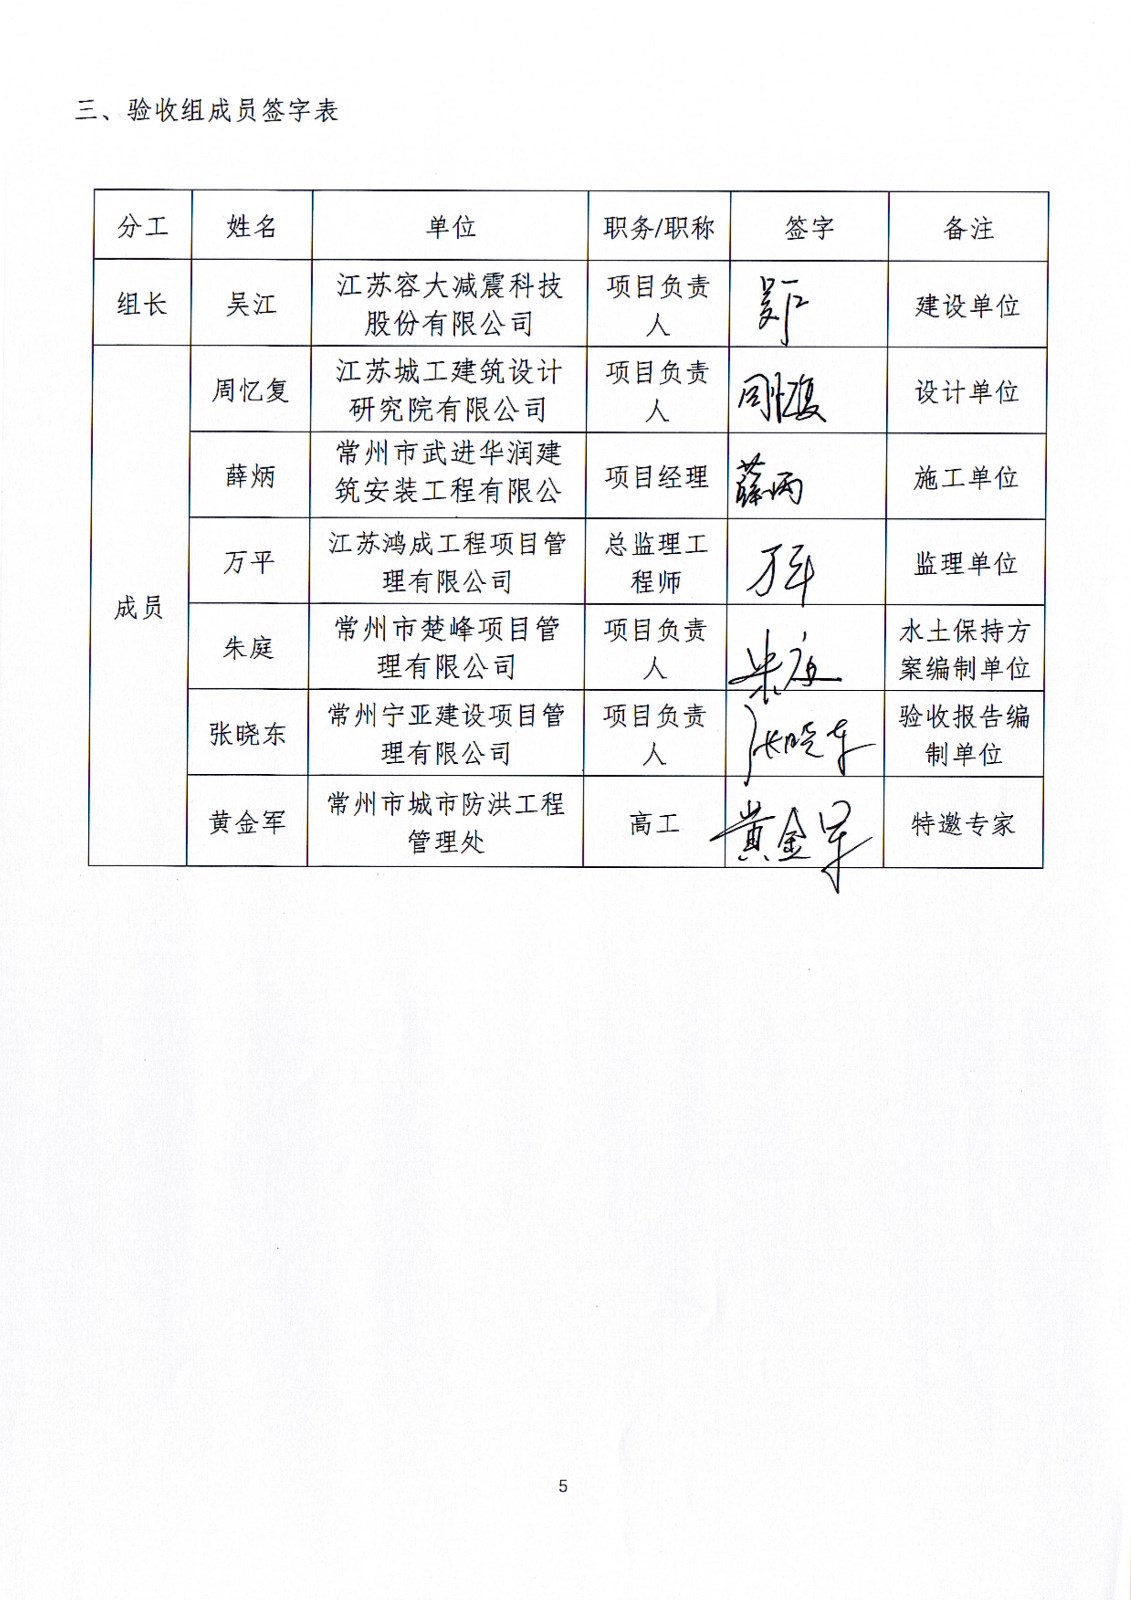 三、验收组成员签字表
分工 姓名 单位 职务/职称 签字 备注
组长 吴江 江苏容大减震科技 项目负责 吴江 建设单位
股份有限公司 人
成员
周忆复 江苏城工建筑设计 项目负责 周忆复 设计单位
研究院有限公司 人
薛炳 常州市武进华润建 项目经理 薛炳 施工单位
筑安装工程有限公
万平 江苏鸿成工程项目管 总监理工 万平 监理单位
理有限公司 程师
朱庭 常州市楚峰项目管 项目负责 朱庭 水土保持方
理有限公司 人 案编制单位
张晓东 常州宁亚建设项目管 项目负责 张晓东 验收报告编
理有限公司 人 制单位
黄金军 常州市城市防洪工程 高工 黄金军 特邀专家
管理处
5